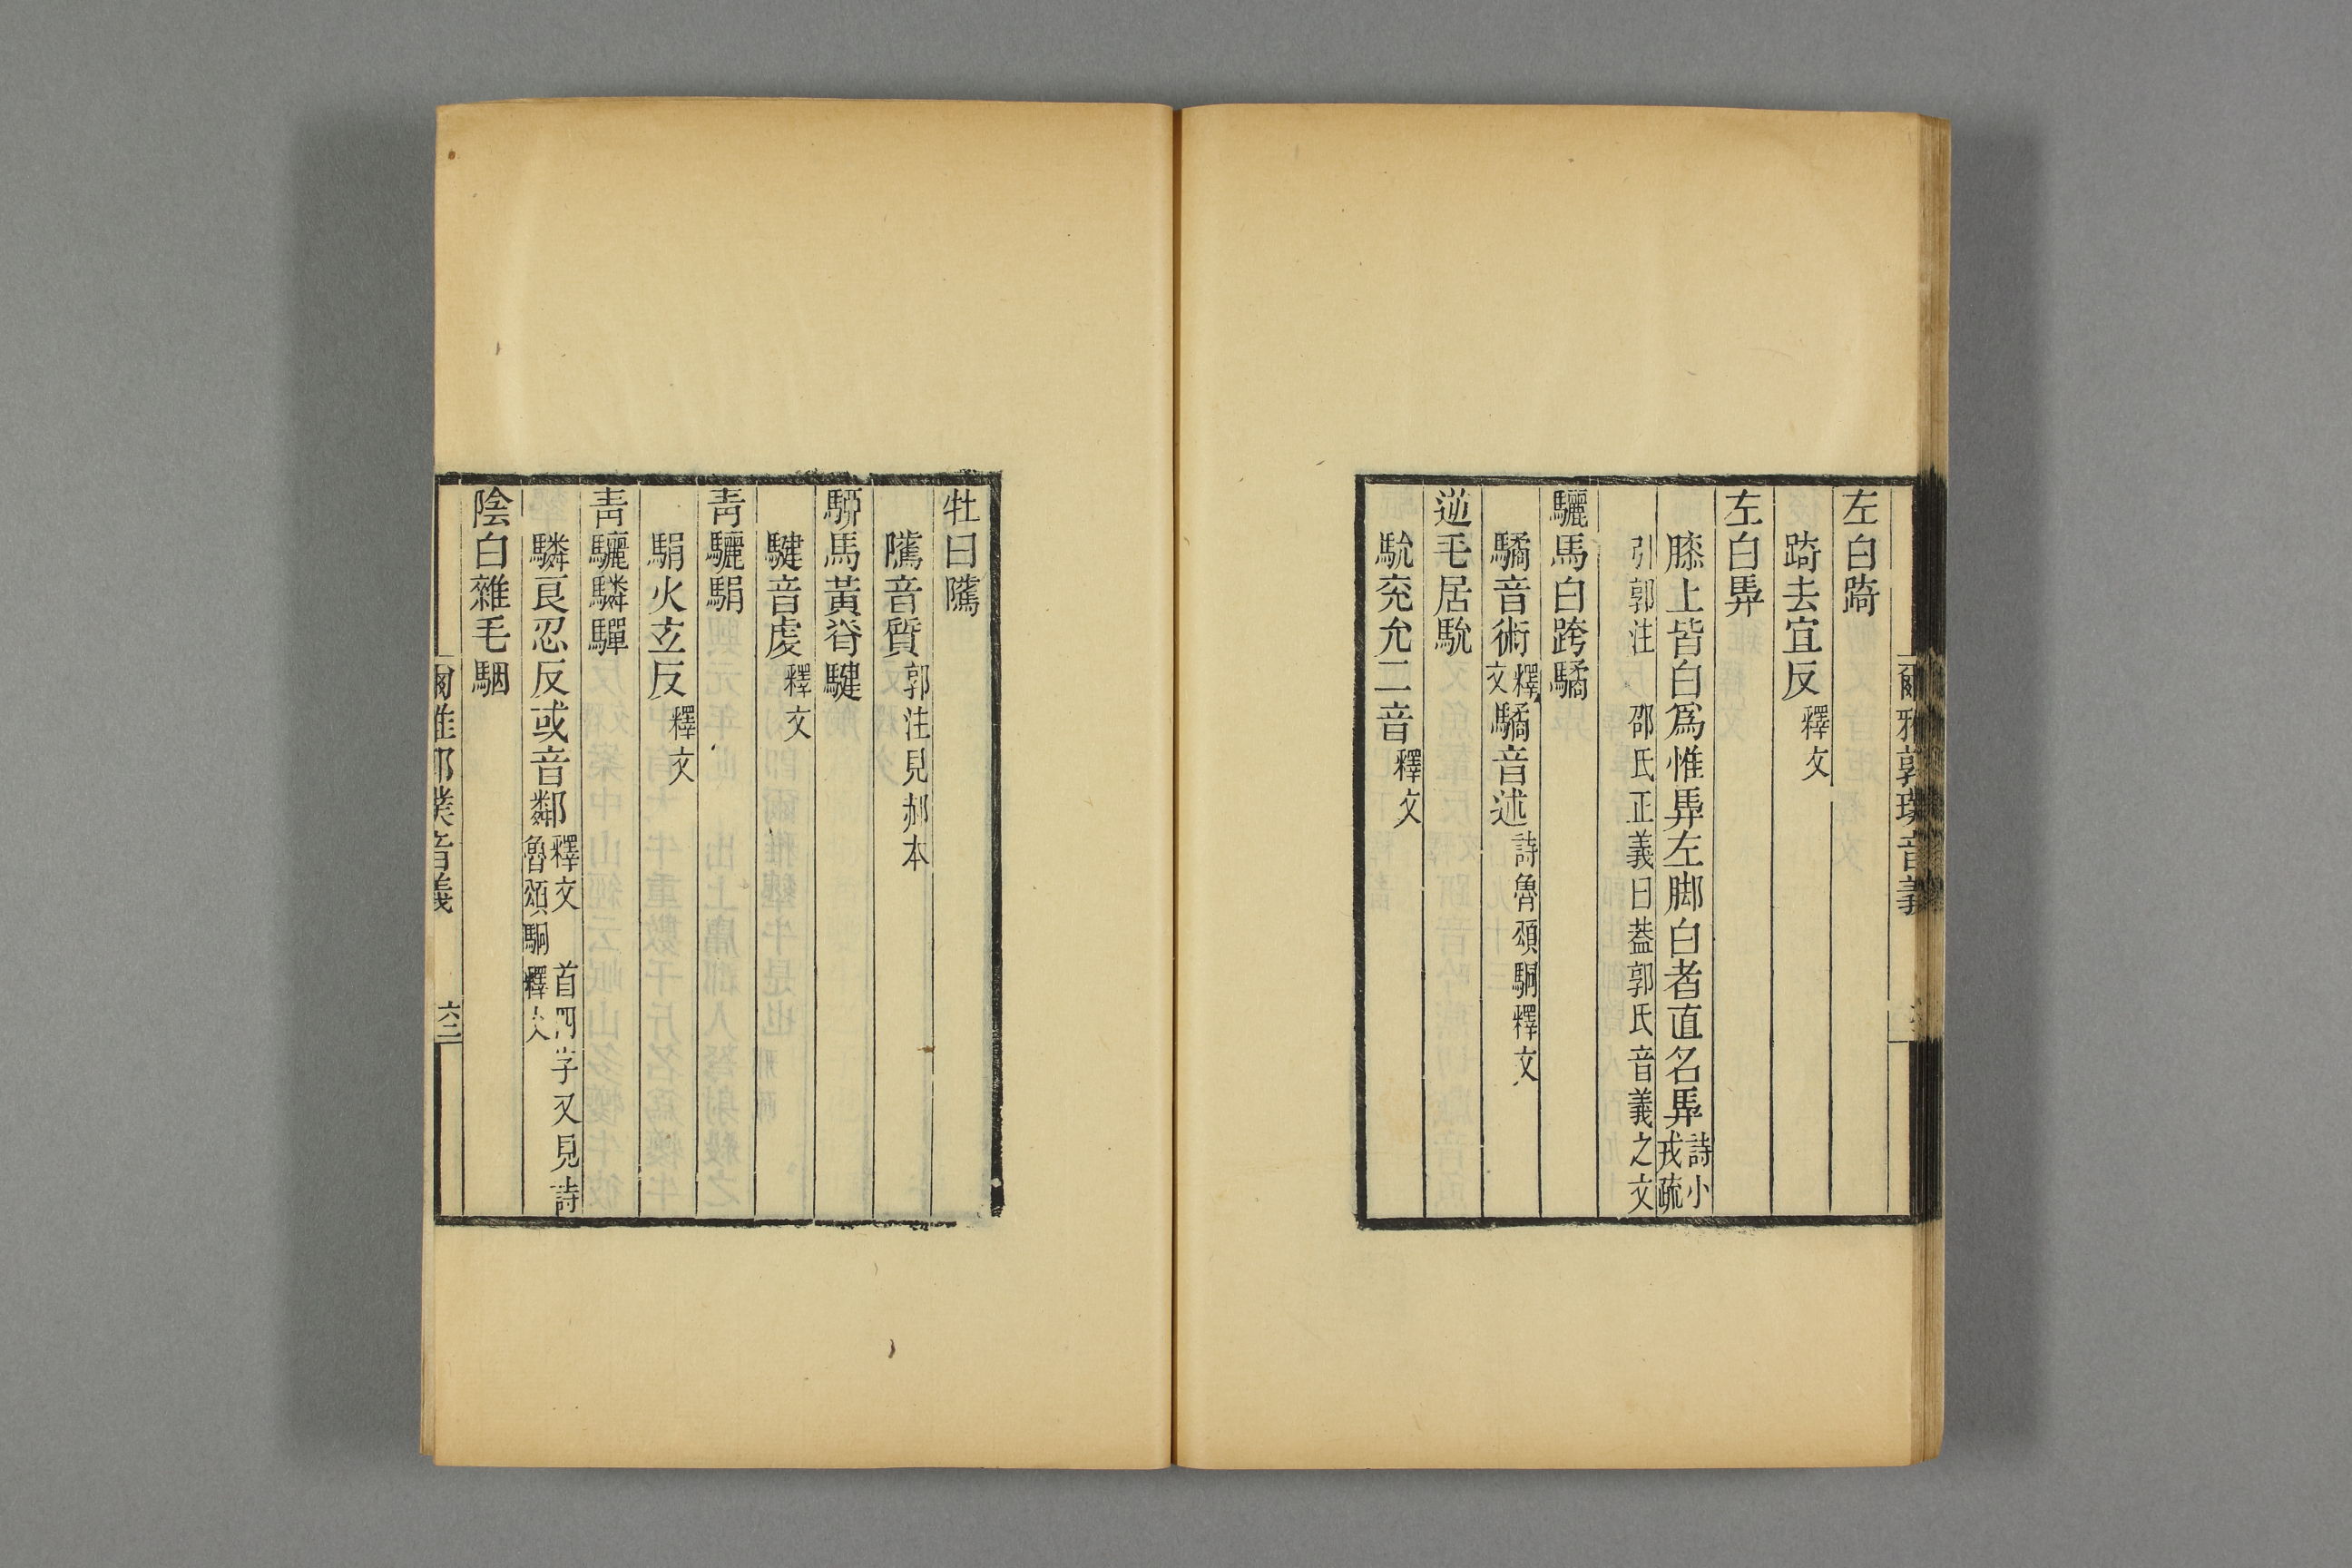 爾雅郭璞音義
左白踦
踦去宜反釋文
左白馵
膝上皆白爲惟馵左脚白者直名馵詩小戎疏
引郭注 邵氏正義曰葢郭氏音義之文
驪馬白跨驈
驈音術釋文驈音述詩魯頌駉釋文
逆毛居馻
馻兖允二音釋文
牡曰騭
騭音質郭注見郝本
騢馬黃脊騝
騝音虔釋文
靑驪駽
駽火玄反釋文
靑驪驎驒
驎良忍反或音鄰釋文 首四字又見詩魯頌駉釋文
陰白雜毛駰
爾雅郭璞音義 六三